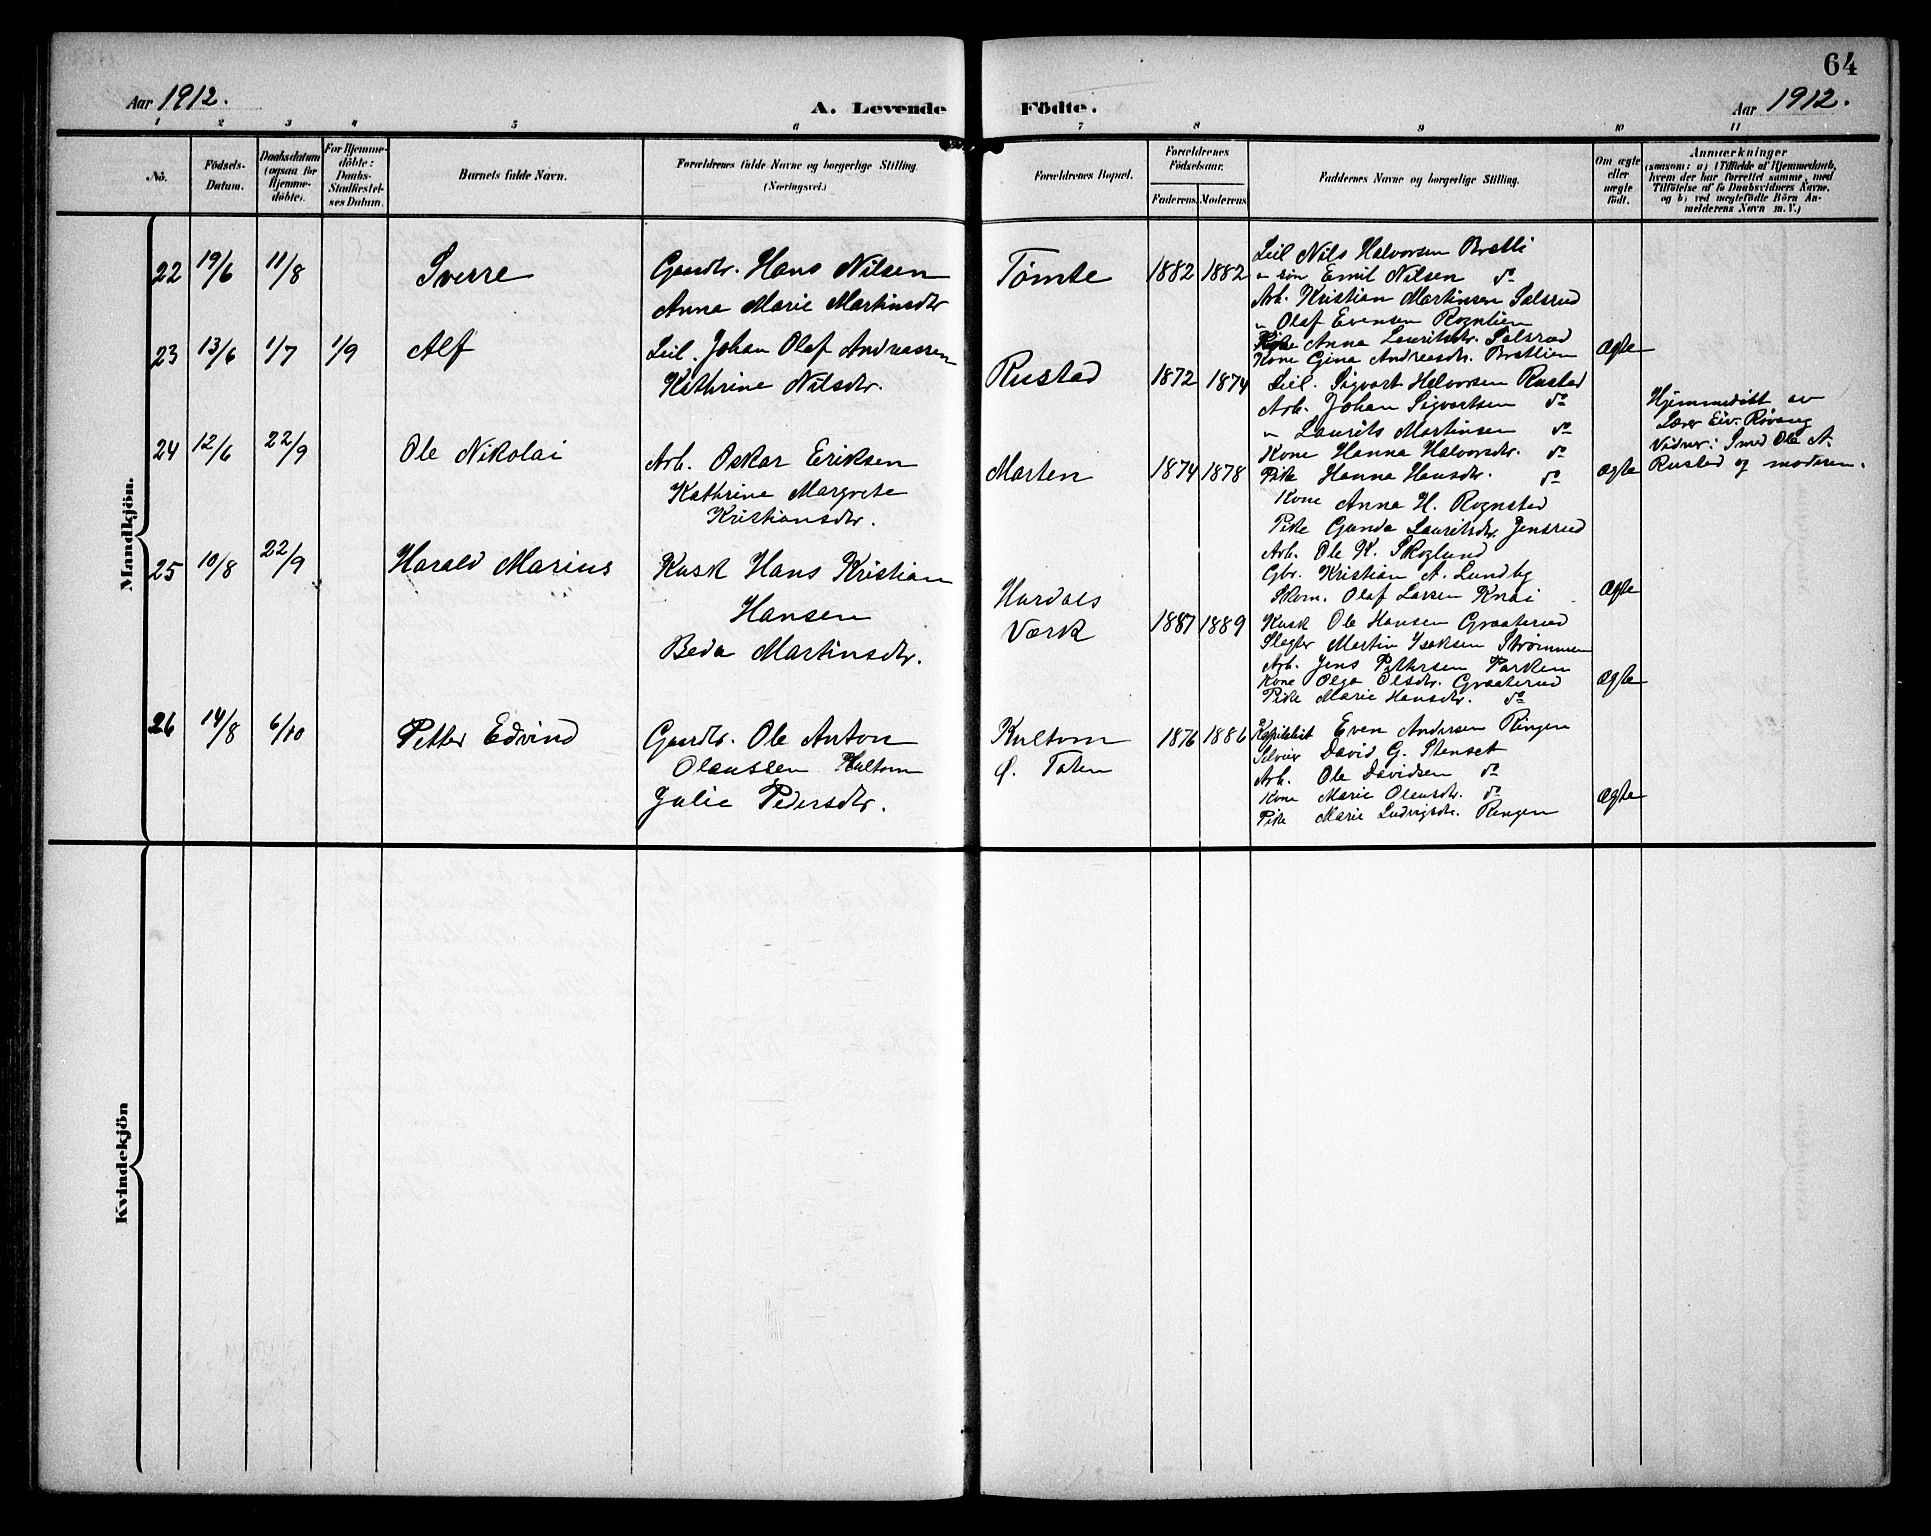 64
Aar 1912.
A. Levende Födte.
Aar 1912.
1 2 3 4 5 6 7 8 9 10 11
No.
Födsels-
Datum.
Daabsdatum
(ogsaa for
Hjemme-
döbte).
For Hjemme-
döbte:
Daabs-
Stadfæstel-
ses Datum.
Barnets fulde Navn.
Forældrenes fulde Navne og borgerlige Stilling.
(Næringsvei.)
Forældrenes Bopæl.
Forældrenes
Födselsaar.
Faderens. Moderens.
Faddernes Navne og borgerlige Stilling.
Om ægte
eller
uægte
födt.
Anmærkninger
(saasom: a) i Tilfælde af Hjemmedaab,
hvem der har forrettet samme, med
Tilföielse af to Daabsvidners Navne,
og b) ved uægtefödte Börn An-
melderens Navn m. V.)
Mandkjön.
22 19/6 11/8 Sverre
Gaardbr. Hans Nilsen
Anna Marie Martinsdtr
Tømte 1882 1882
Leil Nils Halvorsen Bratli
" søn Emil Nilsen do
Arb. Kristian Martinsen Solsrud
" Olaf Evensen Rognlien
Anna Lauritsdtr. Solsrud
Kone Gina Andreasdtr. Brattlien
Ægte
23 13/6 1/7 1/9 Alf
Leil. Johan Olaf Andreassen
Kathrine Nilsdtr.
Rustad 1872 1874
Leil. Sigvart Halvorsen Rustad
Arb. Johan Sigvartsen do
" Laurits Martinsen do
Kone Hanna Halvorsdtr. do
Pike Hanna Hansdtr. do
Ægte
Hjemmedøbt av
Lærer Eiv. Røvang
Vidner: Smed Ole A.
Rustad og moderen.
24 12/6 22/9 Ole Nikolai
Arb. Oskar Eriksen
Kathrine Margrete
Kristiansdtr.
Marten 1874 1878
Kone Anna H. Rognstad
Pike Gunda Lauritsdtr. Jensrud
Arb. Ole K. Skoglund
Gbr. Kristian A. Lundby
Skom. Olaf Larsen Knai
Ægte
25 10/8 22/9 Harald Marius
Kusk Hans Kristian
Hansen
Beda Martinsdtr.
Hurdals
Værk
1887 1889
Kusk Ole Hansen Graaterud
Slagter Martin Isaksen Strømmen
Arb. Jens Pettersen Parken
Kone Olga Olsdtr. Graaterud
Pike Marie Hansdtr. do
Ægte
26 14/8 6/10 Petter Edvind
Gaardbr. Ole Anton
Olaussen Kultom
Julie Pedersdtr.
Kultom
Ø. Toten
1876 1886
Kapitalist Even Andersen Ringen
Selveier David G. Stenset
Arb. Ole Davidsen do
Kone Marie Olausdtr. do
Pike Marie Ludvigsdtr. Ringen
Ægte
Kvindekjön